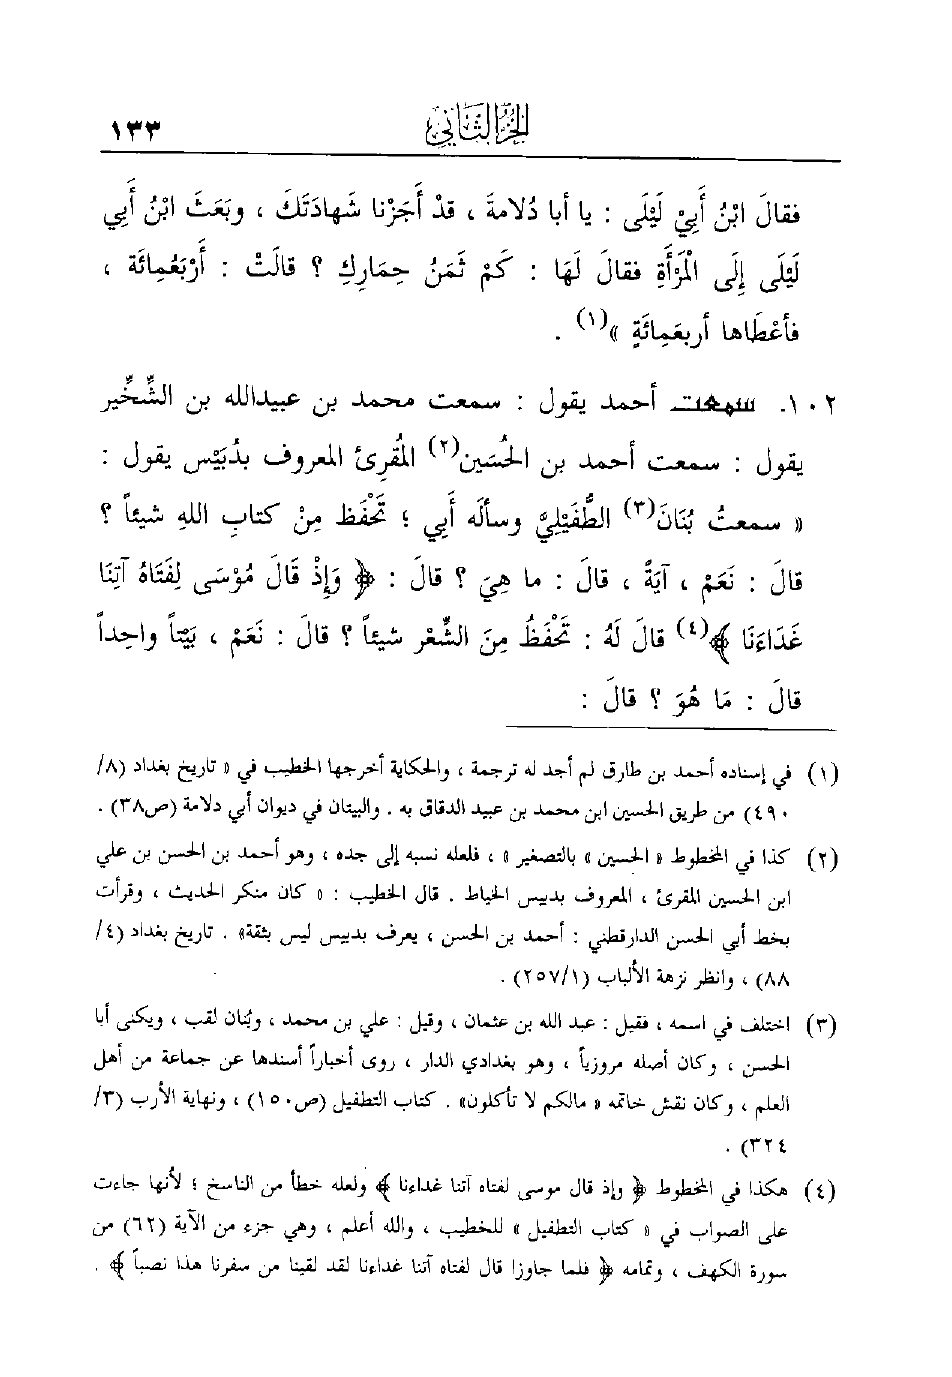 الجزء الثاني
١٣٣
فقالَ ابْنُ أَبِيْ لَيْلَى : يا أبا دُلامةَ ، قدْ أَجَزْنا شَهادَتَكَ ، وبَعَثَ ابْنُ أَبِي
لَيْلَى إِلَى الْمَرْأَةِ فقالَ لَهَا : كَمْ ثَمَنُ حِمَارِكِ ؟ قالَتْ : أَرْبَعُمِائَة ،
فأعْطَاها أربعَمِائَةٍ »(١) .
١٠٢. سمعت أحمد يقول : سمعت محمد بن عبيدالله بن الشِّخِّير
يقول : سمعت أحمد بن الحُسَين(٢) المُقرِئ المعروف بدُبَيْس يقول :
« سمعتُ بُنَانَ(٣) الطُّفَيْلِيَّ وسألَه أَبِي ؛ تَحْفَظ مِنْ كتابِ اللهِ شيئاً ؟
قالَ : نَعَمْ ، آيَةً ، قالَ : ما هِيَ ؟ قالَ : ﴿ وَإِذْ قَالَ مُوْسَى لِفَتَاهُ آتِنَا
غَدَاءَنَا ﴾(٤) قالَ لَهُ : تَحْفَظُ مِنَ الشِّعْر شيئاً ؟ قالَ : نَعَمْ ، بَيْتاً واحِداً
قالَ : مَا هُوَ ؟ قالَ :
(١) في إسناده أحمد بن طارق لم أجد له ترجمة ، والحكاية أخرجها الخطيب في « تاريخ بغداد (٨/
٤٩٠) من طريق الحسين ابن محمد بن عبيد الدقاق به . والبيتان في ديوان أبي دلامة (ص٣٨) .
(٢) كذا في المخطوط « الحسين » بالتصغير » ، فلعله نسبه إلى جده ، وهو أحمد بن الحسن بن علي
ابن الحسين المقرئ ، المعروف بدبيس الخياط . قال الخطيب : « كان منكر الحديث ، وقرأت
بخط أبي الحسن الدارقطني : أحمد بن الحسن ، يعرف بدبيس ليس بثقة» . تاريخ بغداد (٤/
٨٨) ، وانظر نزهة الألباب (٢٥٧/١) .
(٣) اختلف في اسمه ، فقيل : عبد الله بن عثمان ، وقيل : علي بن محمد ، وبُنان لقب ، ويكنى أبا
الحسن ، وكان أصله مروزياً ، وهو بغدادي الدار ، روى أخباراً أسندها عن جماعة من أهل
العلم ، وكان نقش خاتمه « مالكم لا تأكلون» . كتاب التطفيل (ص١٥٠) ، ونهاية الأرب (٣/
٣٢٤) .
(٤) هكذا في المخطوط ﴿ وإذ قال موسى لفتاه آتنا غداءنا ﴾ ولعله خطأ من الناسخ ؛ لأنها جاءت
على الصواب في « كتاب التطفيل » للخطيب ، والله أعلم ، وهي جزء من الآية (٦٢) من
سورة الكهف ، وتمامه ﴿ فلما جاوزا قال لفتاه آتنا غداءنا لقد لقينا من سفرنا هذا نصباً ﴾ .